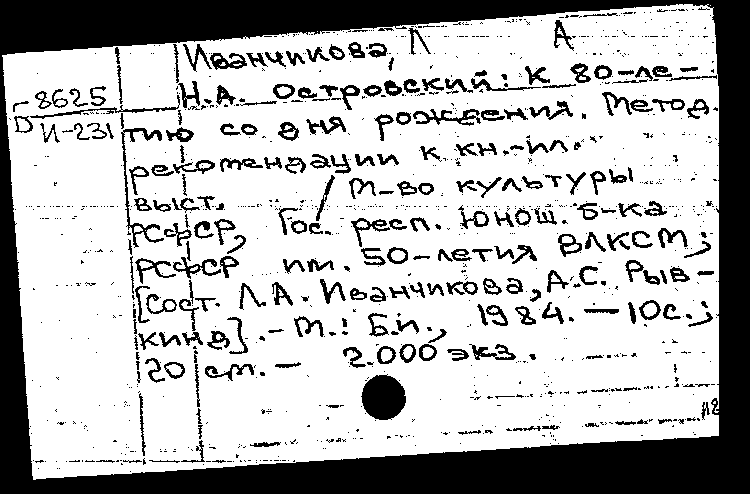 Иванчикова, Л А
Н.А. Островский: К 80-ле-
Г-8625
D И-231
тию со дня рождения. Метод.
рекомендации к кн.-ил.
выст. / М-во культуры
РСФСР, Гос. респ. юнош. б-ка
РСФСР им. 50-летия ВЛКСМ;
[Сост. Л.А. Иванчикова, А.С. Рыв-
кинд]. - М.: Б.и., 1984. — 10с.;
20 см. — 2.000 экз.